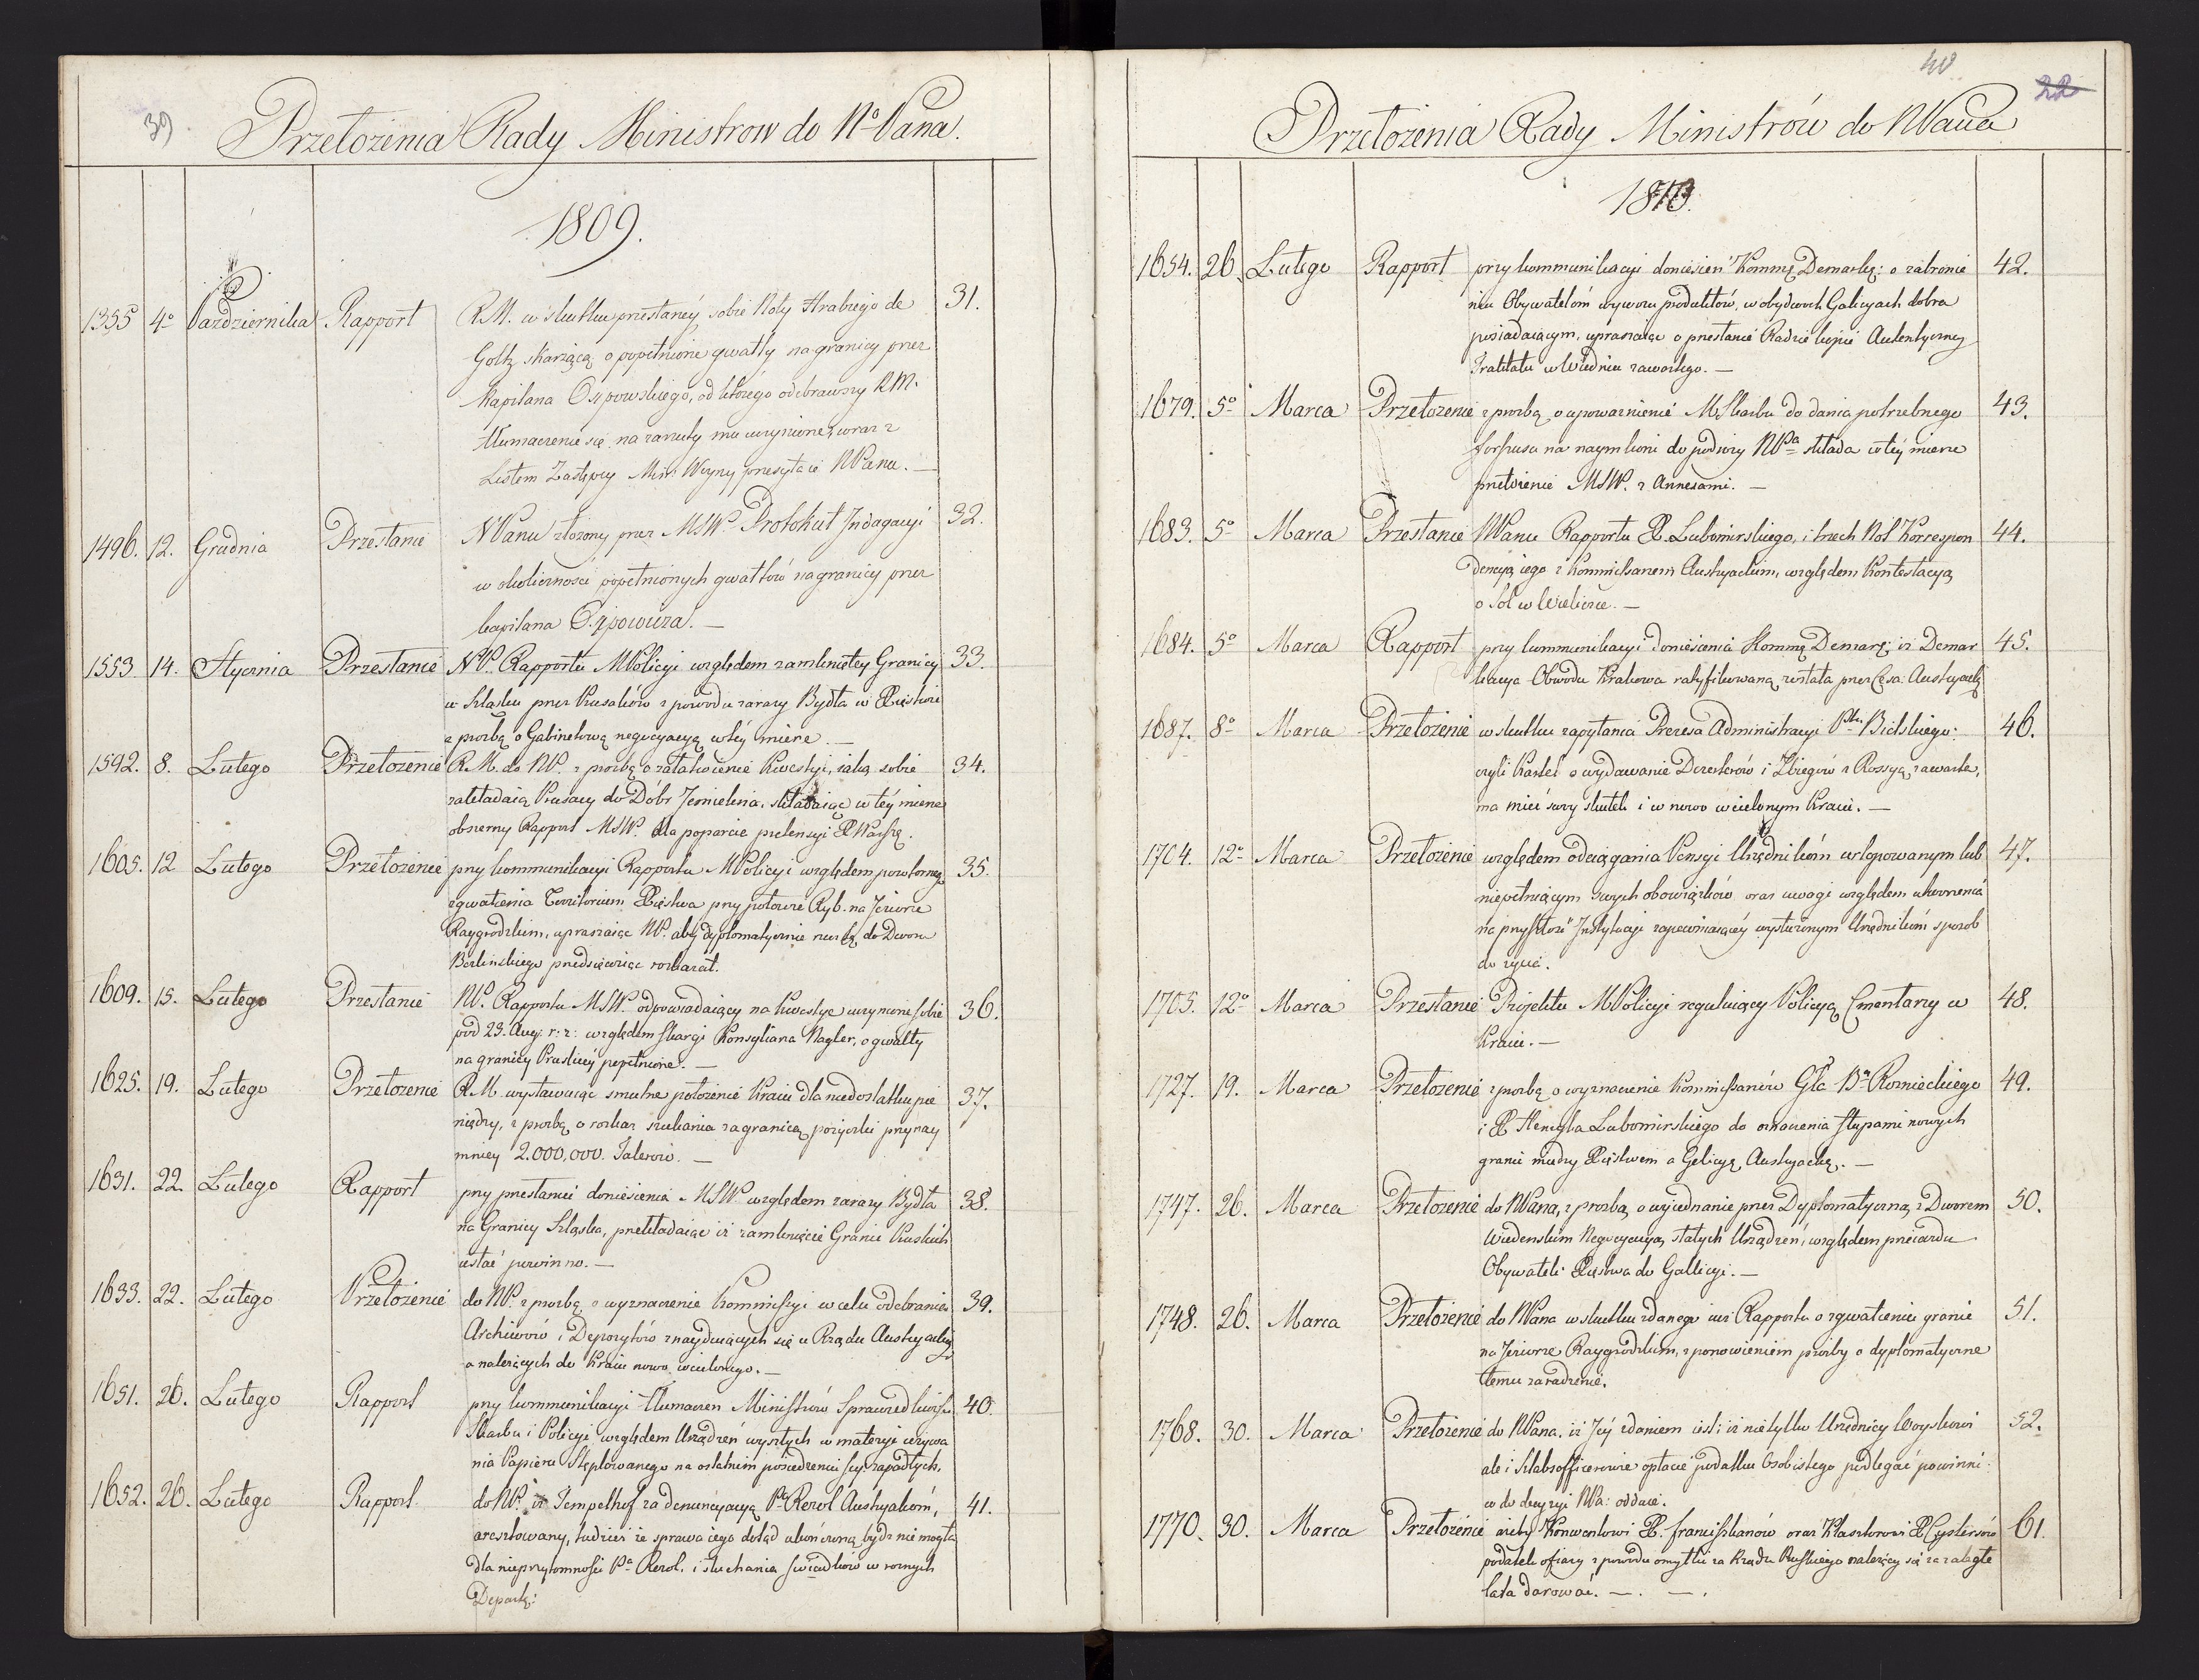 39
Przełożenia Rady Ministrow do No Pana.
1809.
1355 4o Października Rapport R.M. w skutku przesłanéy sobie Noty Hrabiego de 31.
Goltz skarżącą o popełnione gwałty na granicy przez
Kapitana Osipowskiego, od którego odebrawszy RM.
tłumaczenie się na zarzuty mu uczynione, wraz z
Listem Zastępcy Min: Woyny przesyła ie NPanu. —
1496. 12. Grudnia Przesłanie NPanu złożony przez MSW. Protokuł Indagacyi 32.
w okoliczności popełnionych gwałtów na granicy przez
kapitana Osipowicza. —
1553 14. Stycznia Przesłanie NP. Rapportu MPolicyi względem zamkniętey Granicy 33.
w Szląsku przez Prusaków z powodu zarazy Bydła w Xięstwie
z prozbą o Gabinetową negocyacyą wtéy mierze —
1592. 8. Lutego Przełożenie R.M. do NP. z prozbą o załatwienie Kwestyi, iaką sobie 34.
zakładaią Prusacy do Dóbr Jemielina, składaiąc w téy mierze
obszerny Rapport MSW. dla poparcia pretensyi XWarszą.
1605. 12 Lutego Przełożenie przy kommunikacyi Rapportu MPolicyi względem powtornego 35.
zgwałcenia Territorium Xięstwa przy połowie Ryb. na Jeziorze
Raygrodzkim, upraszaiąc NP. aby dyplomatycznie rzecz tę do Dworu
Berlińskiego przedsięwziąć rozkazał.
1609. 15. Lutego Przesłanie NP. Rapportu MSW. odpowiadaiący na kwestye uczynione sobie 36.
pod 23. Aug: r: z: względem skargi Konsyliarza Nagler, o gwałty
na granicy Pruskiéy popełnione. —
1625. 19. Lutego Przełożenie R.M. wystawuiąc smutne położenie Kraiu dla niedostatku pie 37.
niędzy, z prozbą o rozkaz szukania za granicą pożyczki przynay
mniey 2.000,000. Talerów. —
1631. 22 Lutego Rapport przy przesłaniu doniesienia MSW. względem zarazy Bydła 38.
na Granicy Szląska, przekładaiąc iż zamknięcie Granic Pruskich
ustać powinno. —
1633. 22. Lutego Przełożenie do NP. z prozbą o wyznaczenie Kommissyi w celu odebrania 39.
Archiwów i Depozytów znayduiących się u Rządu Austryackig
a należących do Kraiu nowo wcielonego. —
1651. 26. Lutego Rapport przy kommunikacyi tłumaczen Ministrów Sprawiedliwości 40.
Skarbu i Policyi, względem Urządzeń wyszłych w materyi używa
nia Papieru Stęplowanego na ostatnim posiedzeniu sey: zapadłych.
1652. 26. Lutego Rapport do NP. iż Tempelhof za denuncyacyą Pa Rezol Austryakom, 41.
aresztowany, tudzież że sprawa iego dotąd ukończoną bydz nie mogła
dla nieprzytomności Pa Rezol. i słuchania świadków w roznych
Depart:
40
22
Przełożenia Rady Ministrów do NPana
1810.
1654. 26. Lutego Rapport przy kommunikacyi doniesień Kommę Demarkę: o zabronie 42.
niu Obywatelóm wywozu produktów, w obydwóch Galicyach dobra
posiadaiącym, upraszaiąc o przesłanie Radzie kopii Autentyczney
Traktatu w Wiedniu zawartego. —
1679. 5o Marca Przełożenie z prozbą o upoważnienie MSkarbu do dania potrzebnego 43.
forszusu na naym koni do podroży NPa składa w téy mierze
przełożenie MSW. z Annexami. —
1683. 5o Marca Przesłanie NPanu Rapportu X. Lubomirskiego, i trzech Not Korrespon 44.
dencyą iego z Kommissarzem Austryackim, względem Kontestacyą
o Sol w Wieliczce. —
1684. 5o Marca Rapport przy kommunikacyi doniesienia Kommę Demarę; iż Demar 45.
kacya Obwodu Krakowa ratyfikowaną została przez Cesa: Austryackę
1687. 8o Marca Przełożenie w skutku zapytania Prezesa Administracyi Pbtu Bialskiego: 46.
czyli Kartel o wydawanie Dezerterów i Zbiegów z Rossyą zawarta,
ma mieć swoy skutek i w nowo wcielonym Kraiu. —
1704. 12o Marca Przełożenie względem odciągania Pensyi Urzędnikóm urlopowanym lub 47.
niepełniącym swych obowiązków oraz uwagi względem utworzenia
na przyszłość Instytucyi zapewniaiącéy wysłużonym Urzędnikóm sposob
do życia.
1705. 12o Marca Przesłanie Projektu MPolicyi reguluiący Policyą Cmentarzy w 48.
Kraiu. —
1727. 19. Marca Przełożenie z prozbą o wyznaczenie Kommissarzów Gła Ba Roznieckiego 49.
i X Henryka Lubomirskiego do oznaczenia słupami nowych
granic między Xięstwem a Galicyą Austryacką. —
1747. 26. Marca Przełożenie do NPana, z prozbą o uiednanie przez Dyplomatyczną z Dworem 50.
Wiedenskim Negocyacyą stałych Urządzeń, względem przeiazdu
Obywateli Xięstwa do Gallicyi. —
1748. 26. Marca Przełożenie do NPana w skutku zdanego iuż Rapportu o zgwałceniu granic 51.
na Jeziorze Raygrodzkim, z ponowieniem prozby o dyplomatyczne
temu zaradzenie.
1768. 30. Marca Przełożenie do NPana. iż Jéy zdaniem iest: iż nietylko Urzędnicy Woyskowi 52.
ale i Sztabsofficerowie opłacie podatku Osobistego podlegać powinni:
co do decyzyi NPa: oddaie.
1770. 30. Marca Przełożenie ażeby Konwentowi X. franciszkanów oraz Klasztorowi X Cystersów 61.
podatek ofiary z powodu omyłki za Rządu Pruskiego należący się za zaległe
lata darować. — . — .